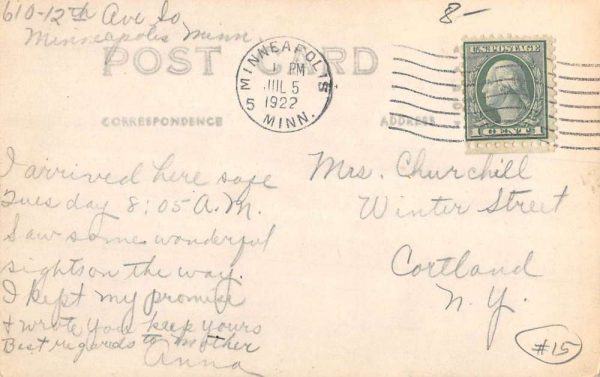 610-12th Ave So
Minneapolis Minn.
8-
POST CARD
MINNEAPOLIS
1 PM
JUL 5
1922
5 MINN.
U.S. POSTAGE
1 CENT 1
CORRESPONDENCE
ADDRESS
I arrived here safe
Tuesday 8:05 A.M.
Saw some wonderful
sights on the way.
I kept my promise
& wrote you keep yours
Best regards to Mother
Anna
Mrs. Churchill
Winter Street
Cortland
N.Y.
#15